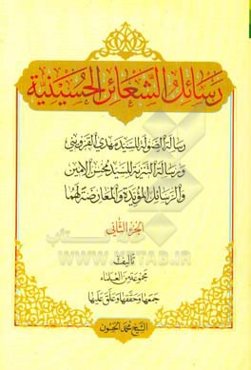 رسائل الشعائر الحسينية
رسالة الصولة للسيد مهدي القزويني
ورسالة التنزيه للسيد محسن الأمين
والرسائل المؤيدة والمعارضة لهما
الجزء الثاني
تأليف
مجموعة من العلماء
جمعها وحققها وعلق عليها
الشيخ محمد الحسون